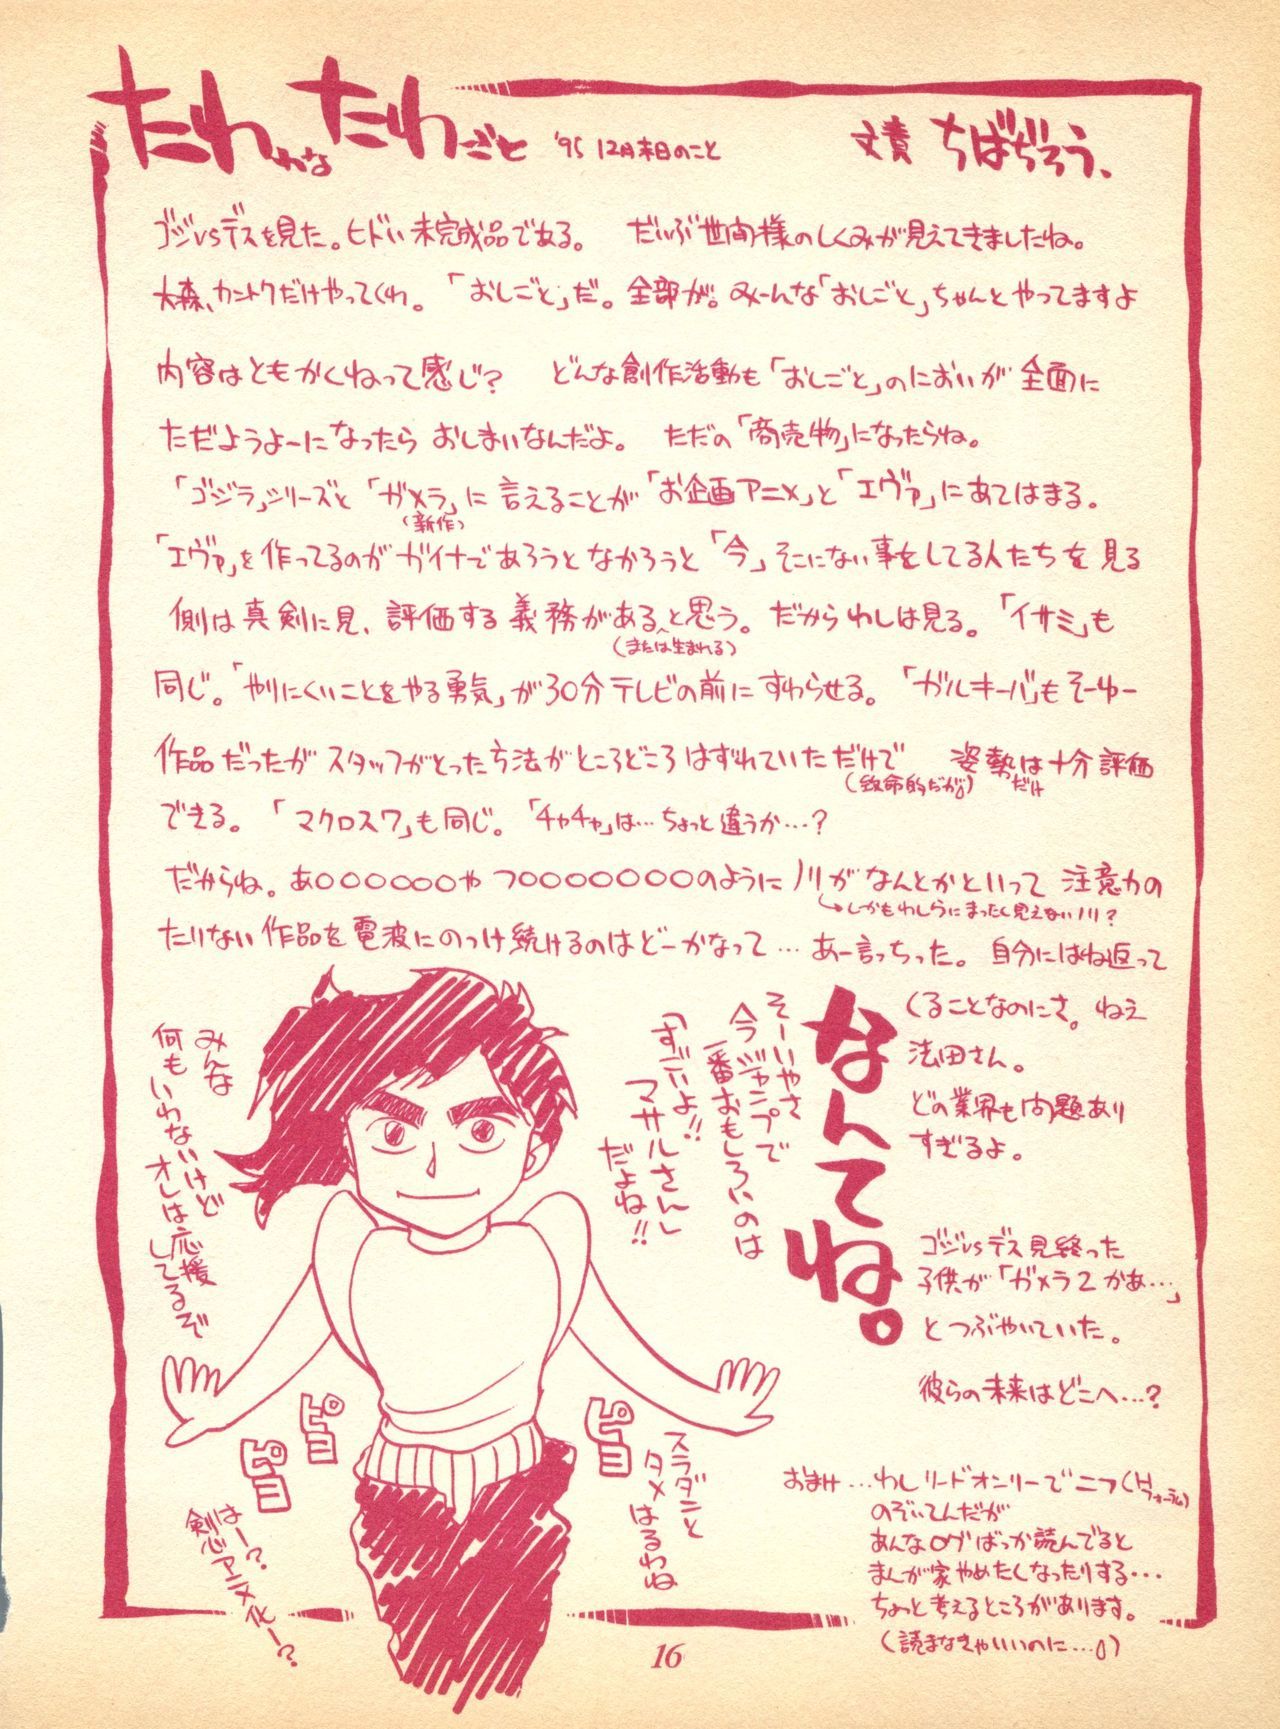 たわわな たわごと '95 12月末日のこと
文責 ちばぢろう、
ゴジvsデスを見た。ヒドい未完成品である。 だいぶ世間様のしくみが見えてきましたね。
大森、カントクだけやってくれ。「おしごと」だ。全部が。みーんな「おしごと」ちゃんとやってますよ
内容はともかくねって感じ? どんな創作活動も「おしごと」のにおいが全面に
ただようよーになったらおしまいなんだよ。 ただの「商売物」になったらね。
「ゴジラ」シリーズと「ガメラ」に言えることが「お企画アニメ」と「エヴァ」にあてはまる。
(新作)
「エヴァ」を作ってるのがガイナであろうとなかろうと「今」そこにない事をしてる人たちを見る
側は真剣に見、評価する義務がある、と思う。だからわしは見る。「イサミ」も
(または生まれる)
同じ。「やりにくいことをやる勇気」が30分テレビの前にすわらせる。「ガルキーバ」もそーゆー
作品だったがスタッフがとった方法がところどころはずれていただけで 姿勢は十分評価
(致命的だが)
だけ
できる。「マクロス7」も同じ。「チャチャ」は…ちょっと違うか…?
だからね。あ○○○○○○やつ○○○○○○○○のように川がなんとかといって注意力の
↳しかもわしらにまったく見えない川?
たりない作品を電波にのっけ続けるのはどーかなって…あー言っちった。自分にはね返って
くることなのにさ。ねえ
法田さん。
どの業界も問題あり
すぎるよ。
なんてね。
そーいやさ
今ジャンプで
一番おもしろいのは
「すごいよ!!
マサルさん」
だよね!!
みんな
何もいわないけど
オレは応援
してるぞ
ゴジvsデス見終った
子供が「ガメラ2かあ…」
とつぶやいていた。
彼らの未来はどこへ…?
ピヨ
ピヨ
ピヨ
スラダンと
タメはるわね
はー?
剣心アニメ化ー?
おまけ…わしリードオンリーでニフ(フォーラム)
のぞいてんだが
あんなログばっか読んでると
まんが家やめたくなったりする…
ちょっと考えるところがあります。
(読まなきゃいいのに…)
16